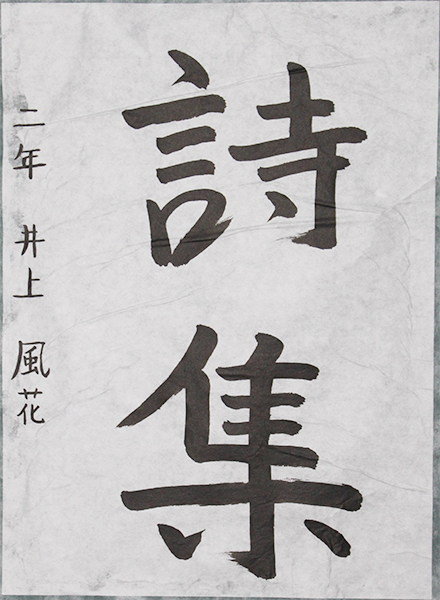 詩集
二年 井上 風花